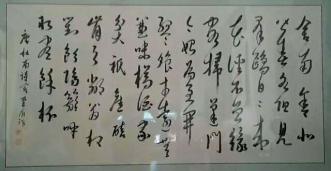 舍南舍北
皆春水但見
群鷗日日來
花徑不曾緣
客掃蓬門
今始為君開
盤飧市遠無
兼味樽酒家
貧祇舊醅
肯與鄰翁相
對飲隔籬呼
取盡餘杯
唐杜甫詩客至